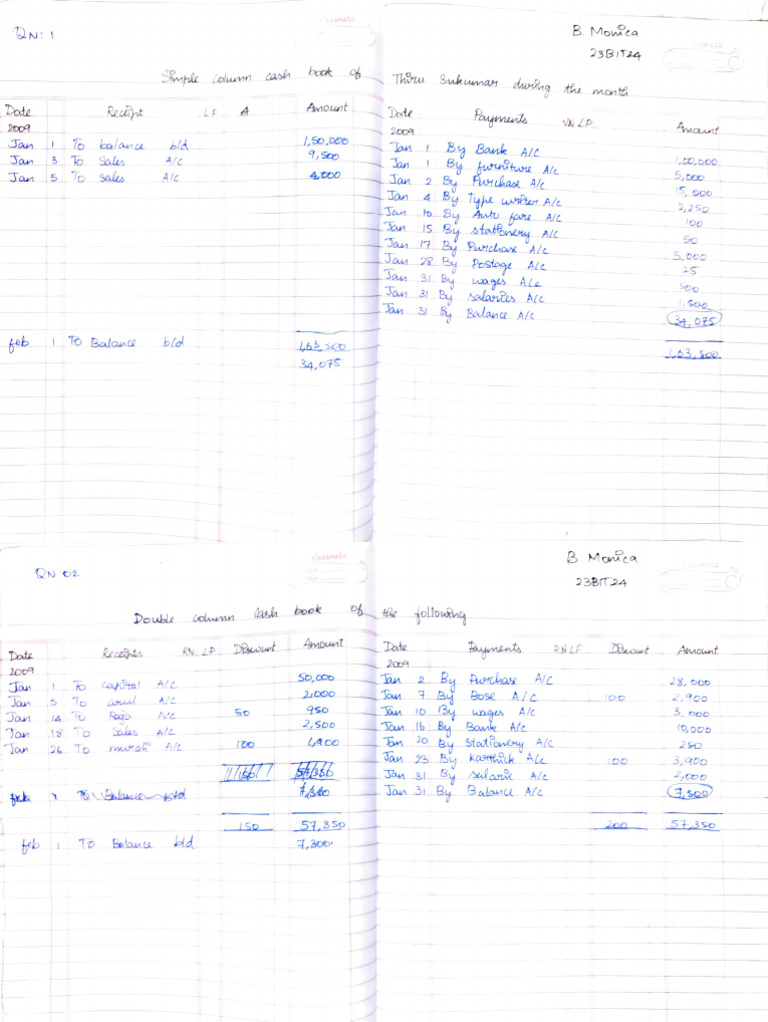 QN: 1
classmate
B. Monica
23BIT24
Simple column cash book of Thiru Sukumar during the month
Date Receipt LF A Amount
2009
Jan 1 To balance b/d 1,50,000
Jan 3 To sales A/C 9,500
Jan 5 To sales A/C 4,000
1,63,500
feb 1 To Balance b/d 34,075
Date Payments VN LP Amount
2009
Jan 1 By Bank A/C 1,00,000
Jan 1 By furniture A/C 5,000
Jan 2 By Purchase A/C 15,000
Jan 4 By Type writer A/C 2,250
Jan 10 By Auto fare A/C 100
Jan 15 By stationery A/C 50
Jan 17 By Purchase A/C 5,000
Jan 28 By Postage A/C 25
Jan 31 By wages A/C 500
Jan 31 By salaries A/C 1,500
Jan 31 By Balance A/C 34,075
1,63,500
QN 02
classmate
B. Monica
23BIT24
Double column Cash book of the following
Date Receipts RN LP Discount Amount
2009
Jan 1 To capital A/C 50,000
Jan 5 To arul A/C 2,000
Jan 14 To Raja A/C 50 950
Jan 18 To Sales A/C 2,500
Jan 26 To murali A/C 100 1,900
150 57,350
feb 1 To Balance b/d 7,300
Date Payments RN LF Discount Amount
2009
Jan 2 By Purchase A/C 28,000
Jan 7 By Bose A/C 100 2,900
Jan 10 By wages A/C 3,000
Jan 16 By Bank A/C 10,000
Jan 20 By Stationery A/C 250
Jan 23 By Karthick A/C 100 3,900
Jan 31 By salarie A/C 2,000
Jan 31 By Balance A/C 7,300
200 57,350